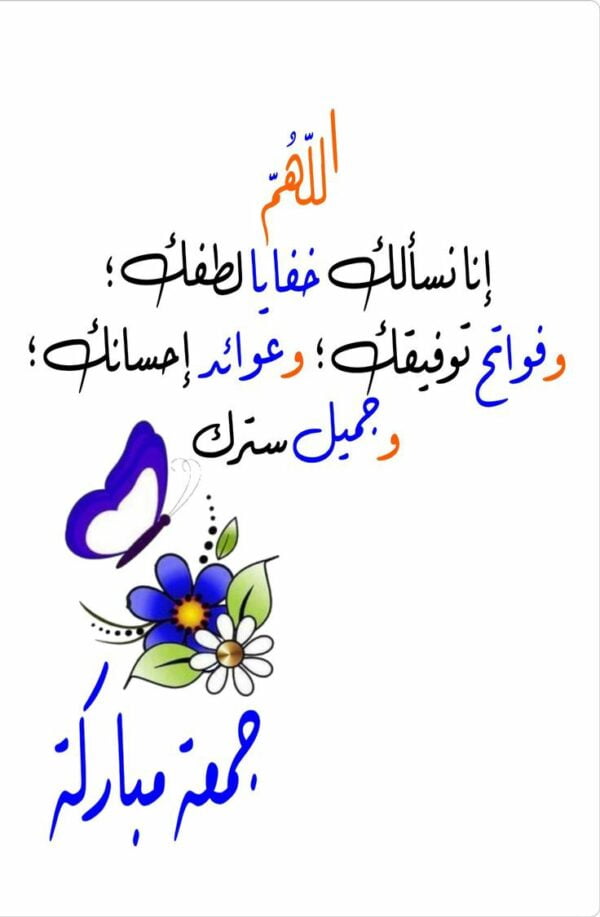 اللّهُمّ
إنا نسألك خفايا لطفك ؛
وفواتح توفيقك ؛ وعوائد إحسانك ؛
وجميل سترك
جمعة مباركة